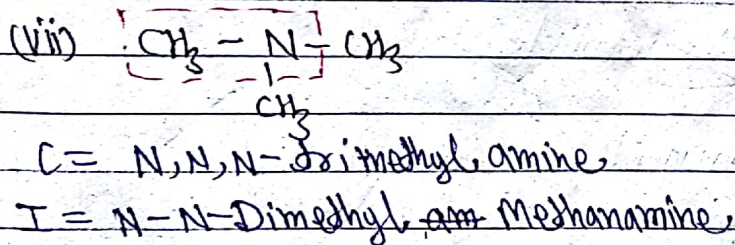 (vii) CH₃ – N – CH₃
|
CH₃
C = N,N,N-trimethyl amine
I = N-N-Dimethyl am Methanamine